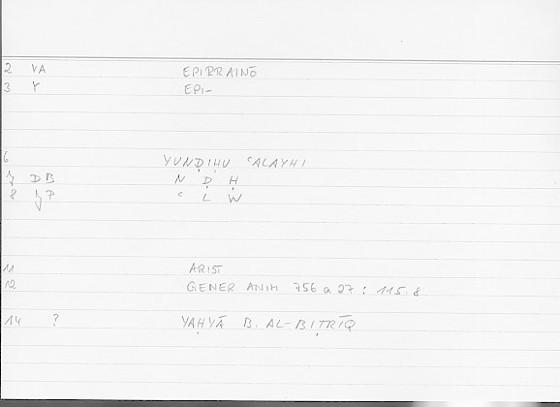 2 VA EPIRRAINŌ
3 Y EPI-
6 YUNḌIḤU ʿALAYHI
7 DB N Ḍ Ḥ
8 JP ʿ L W
11 ARIST
12 GENER ANIM 756 a 27 : 115.8
14 ? YAḤYĀ B. AL-BIṬRĪQ